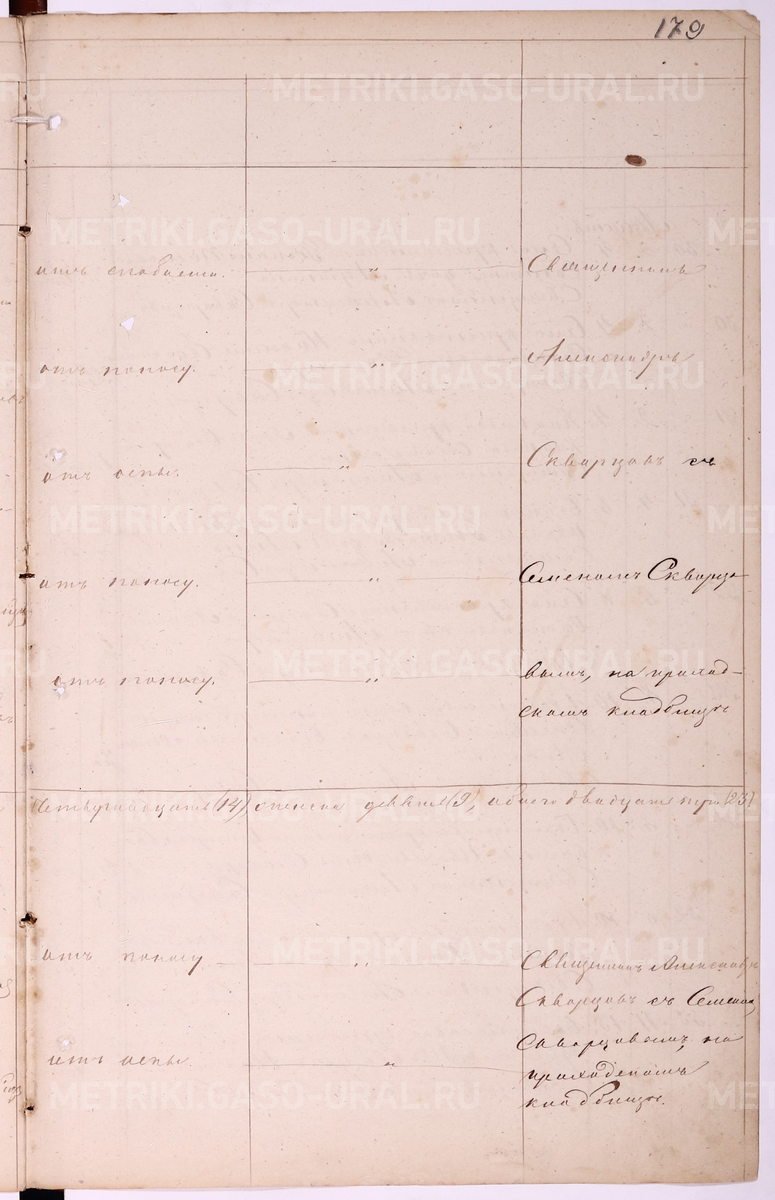 179
METRIKI.GASO-URAL.RU
отъ слабости. " Священникъ
отъ поносу. " Александръ
отъ оспы. " Скварцовъ съ
отъ поносу. " Семеномъ Скварцо-
отъ поносу. " вымъ, на приход-
скомъ кладбищѣ
четырнадцать (14), женска девять (9), обоего двадцать три (23)
отъ поносу " Священникъ Александръ
Скварцовъ съ Семеном
отъ оспы. " Скварцовымъ на
приходскомъ
кладбищѣ.